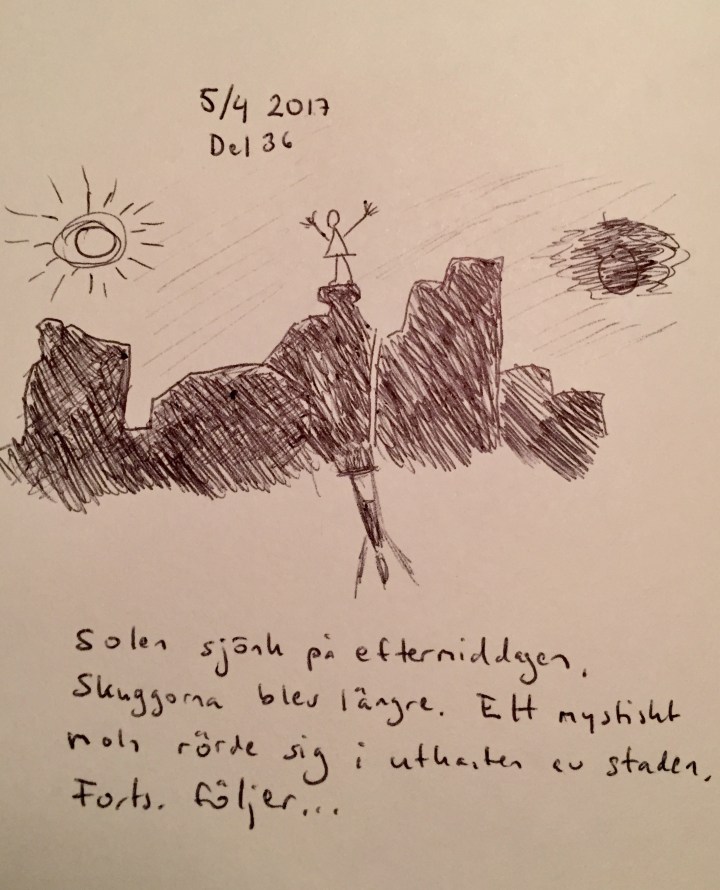 5/4 2017
Del 36
Solen sjönk på eftermiddagen.
Skuggorna blev längre. Ett mystiskt
moln rörde sig i utkanten av staden.
Forts. följer...